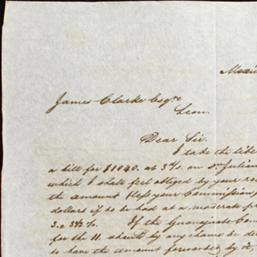 Mexi
James Clarke Esqre
Leon.
Dear Sir.
I take the lib
a bill for $1040. at 3/s. on Dn Julian
which I shall feel obliged by your re
the amount less your Commission,
dollars if to be had at a moderate pr
3 a 3½ %. If the Guanajuato Con
for the 11. should by any chance be de
to have the amount forwarded by